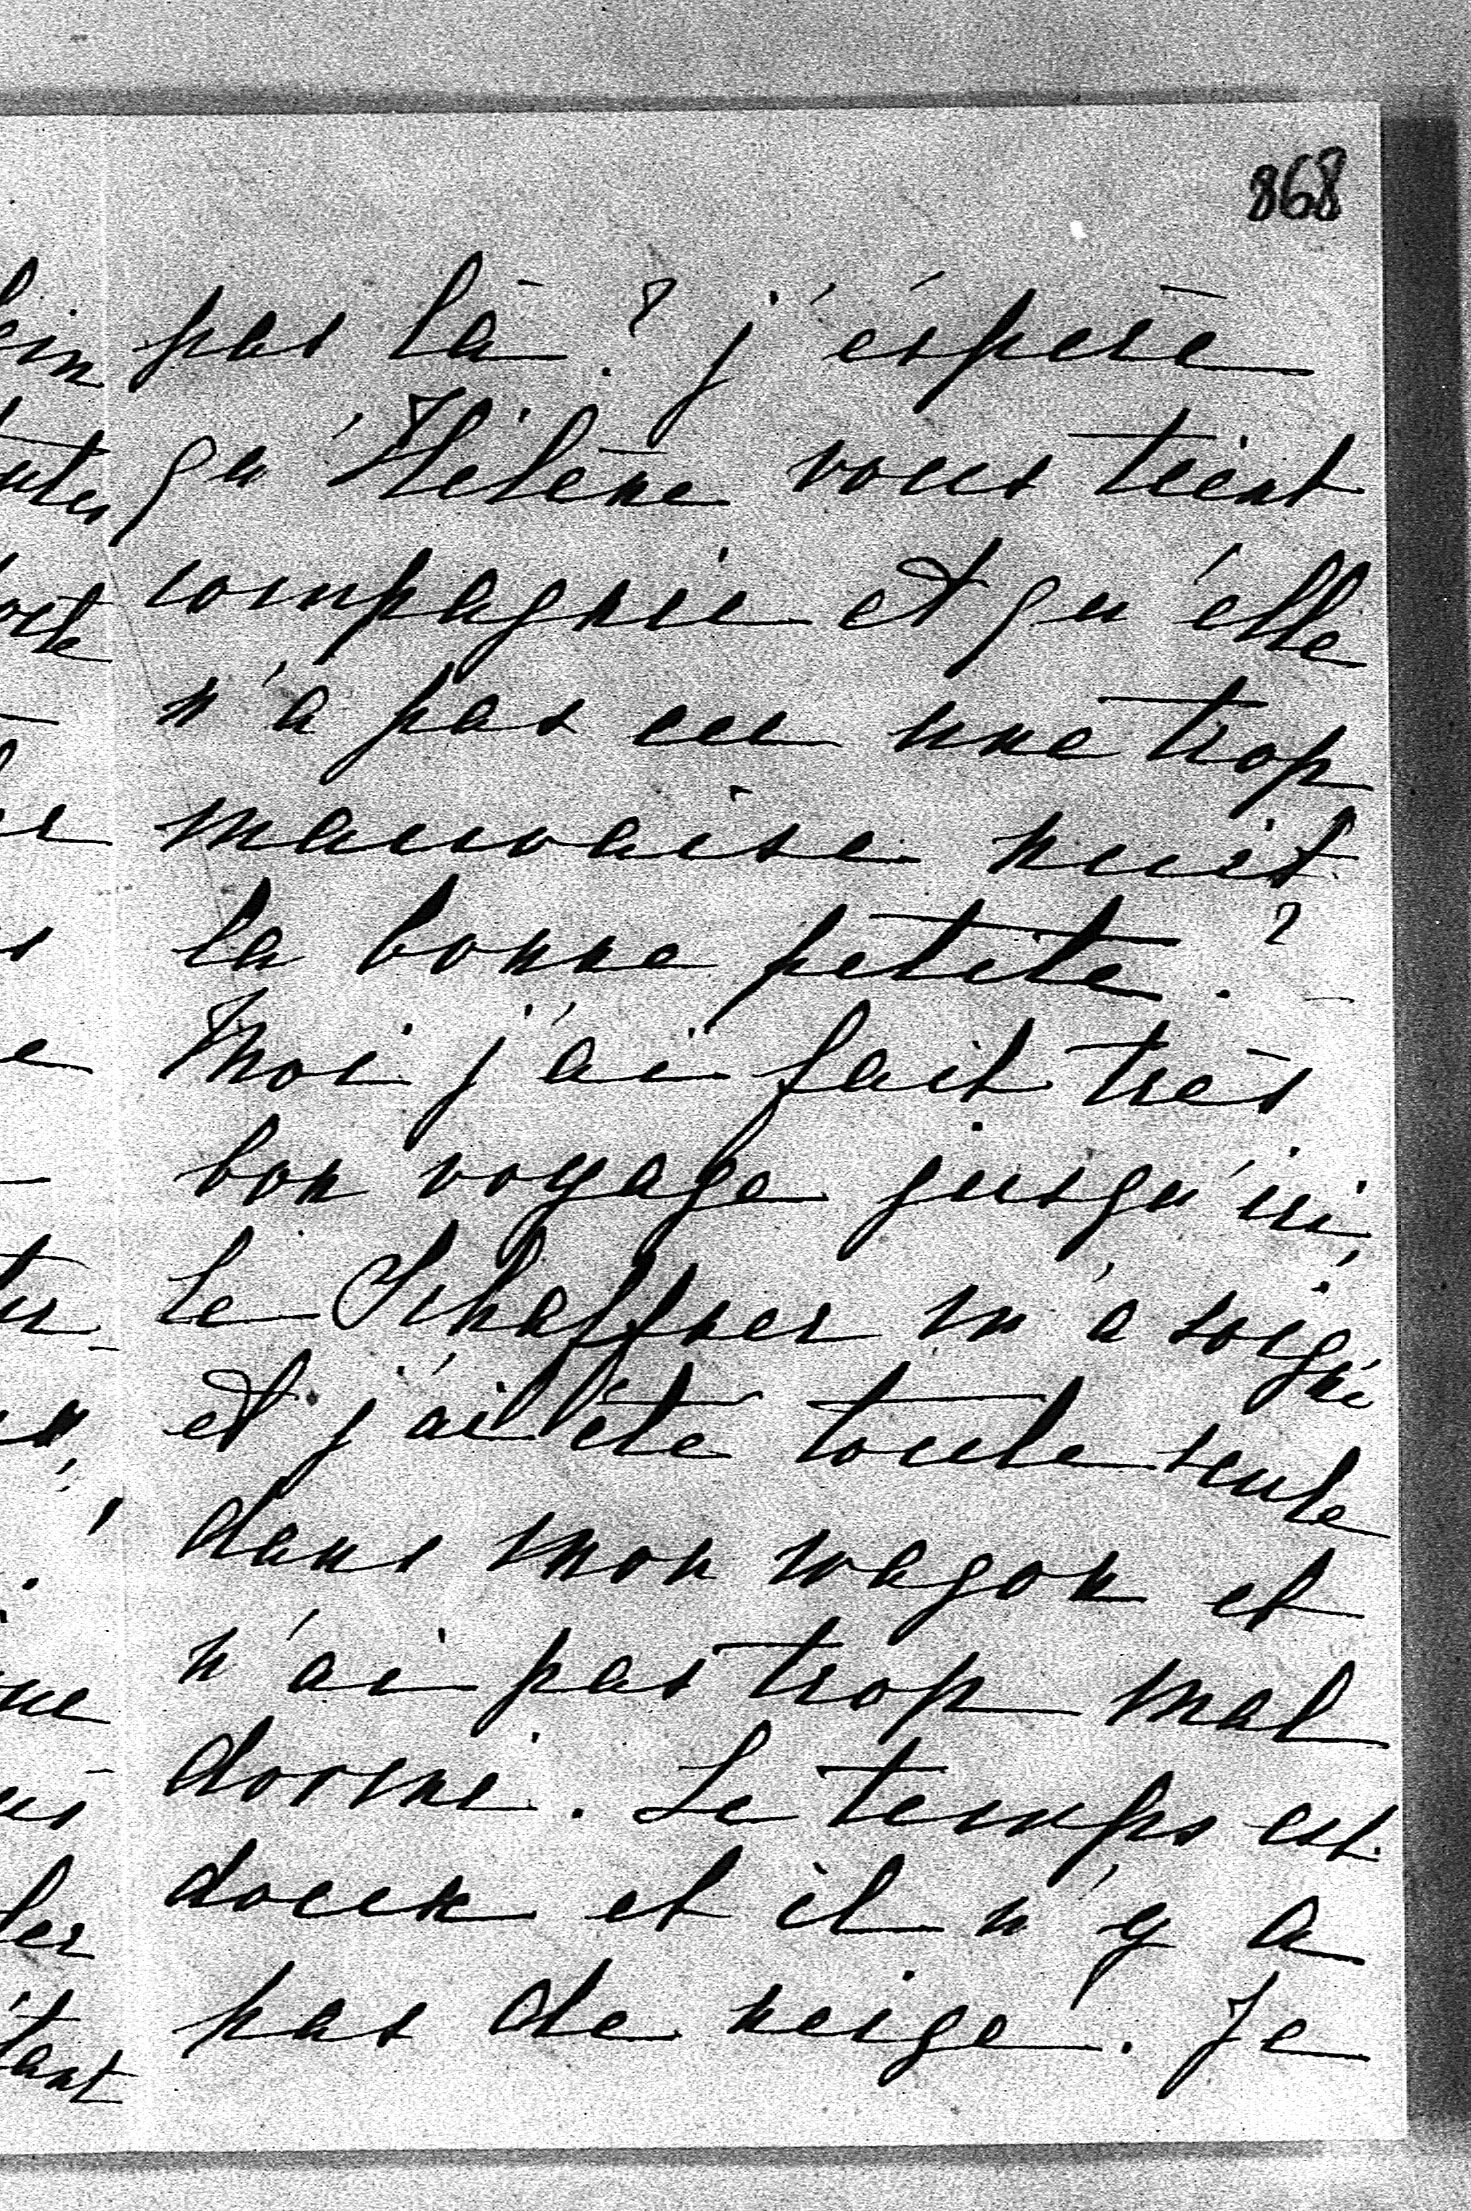 868
pas là? j'éspère
qu'Hélène vous tient
compagnie et qu'elle
n'a pas eu une trop
mauvaise nuit
la bonne petite? –
Moi j'ai fait très
bon voyage jusqu'ici,
le Schaffner m'a soigné
et j'ai été toute seule
dans mon wagon et
n'ai pas trop mal
dormi. Le temps est
doux et il n'y a
pas de neige. Je